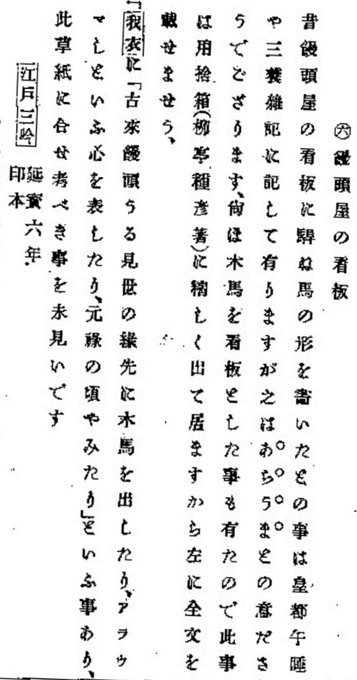 ㊅饅頭屋の看板
昔饅頭屋の看板に騂ね馬の形を書いたとの事は皇都午睡
や三養雑記に記して有りますが之はあらうまとの意ださ
うでござります、尙ほ木馬を看板とした事も有たので此事
は用捨箱(柳亭種彦著)に精しく出て居ますから左に全文を
載せませう、
「我衣に「古來饅頭うる見世の緣先に木馬を出したり、アラウ
マしといふ心を表したり、元祿の頃やみたり」といふ事あり、
此草紙に合せ考べき事を未見いです
江戸三吟
延寶六年.
印本